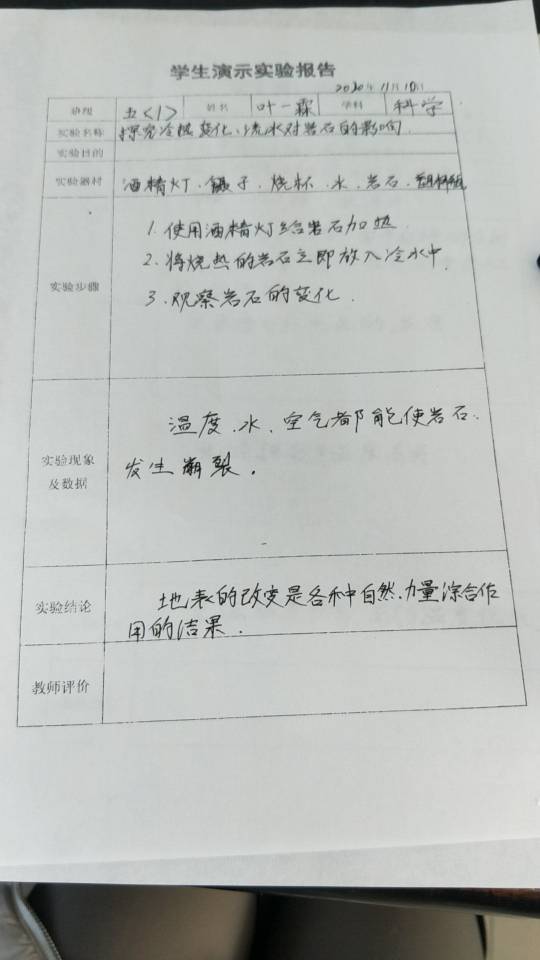 学生演示实验报告
2020年11月10日
班级 五<1> 姓名 叶一霖 学科 科学
实验名称 探究冷热变化、流水对岩石的影响.
实验目的
实验器材 酒精灯、镊子、烧杯、水、岩石、
实验步骤
1. 使用酒精灯给岩石加热
2. 将烧热的岩石立即放入冷水中.
3. 观察岩石的变化.
实验现象
及数据
温度、水、空气都能使岩石
发生崩裂.
实验结论
地表的改变是各种自然力量综合作
用的结果.
教师评价